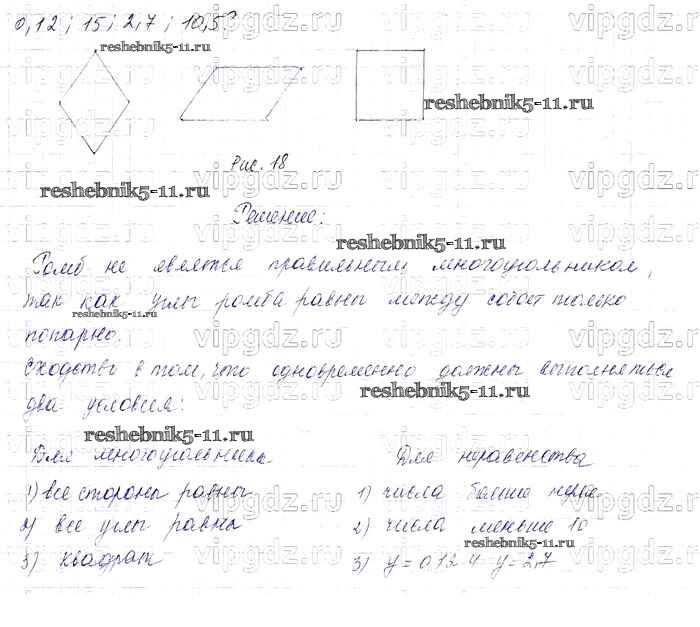 0,12; 15; 2,7; 10,5?
reshebnik5-11.ru
reshebnik5-11.ru
Рис. 18
reshebnik5-11.ru
Решение:
reshebnik5-11.ru
Ромб не является правильным многоугольником,
так как углы ромба равны между собой только
reshebnik5-11.ru
попарно.
Сходство в том, что одновременно должны выполняться
reshebnik5-11.ru
два условия:
reshebnik5-11.ru
Для многоугольника Для неравенства
1) все стороны равны 1) числа больше нуля
2) все углы равны 2) числа меньше 10
reshebnik5-11.ru
3) квадрат 3) y = 0,12 и y = 2,7
vipgdz.ru